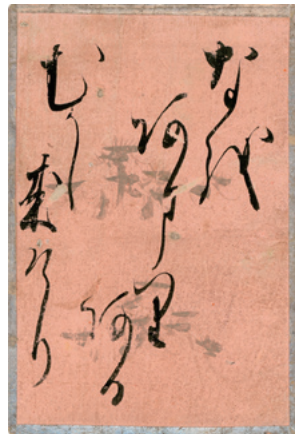 なを
あまり
ある
むかし
なりけり